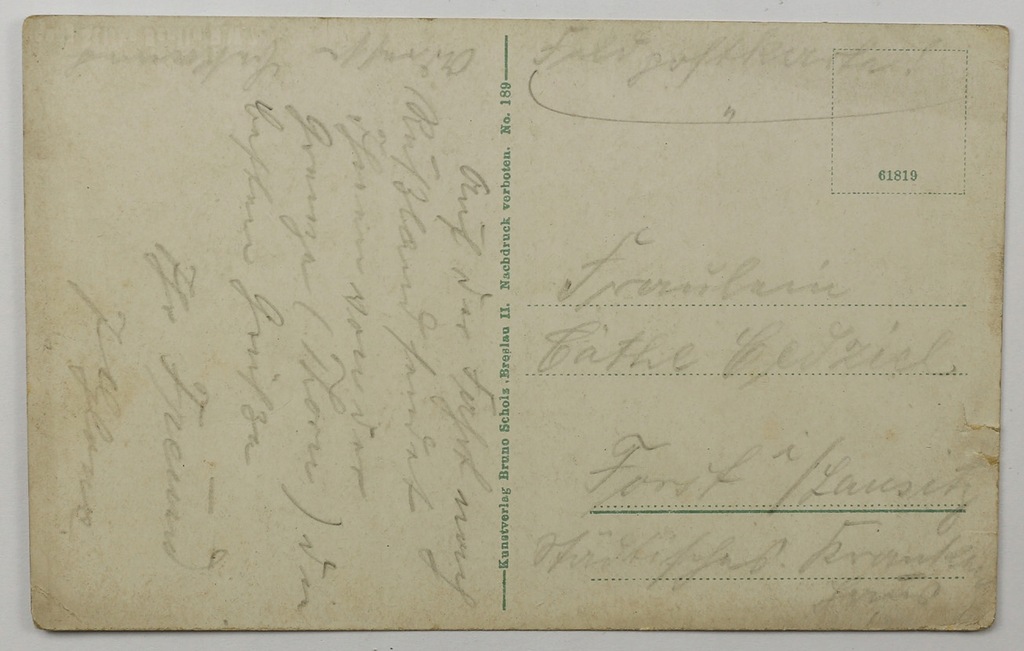 Adresse bekannt
Auf der Fahrt nach
Rußland sendet
Ihnen von der
Grenze (Thorn) die
besten Grüße
Ihr Freund
Kunstverlag Bruno Scholz, Breslau II. Nachdruck verboten. No. 189
Feldpostkarte!
61819
Fraulein
Käthe
Forst i/Lausitz
Städtisches Kranken
haus